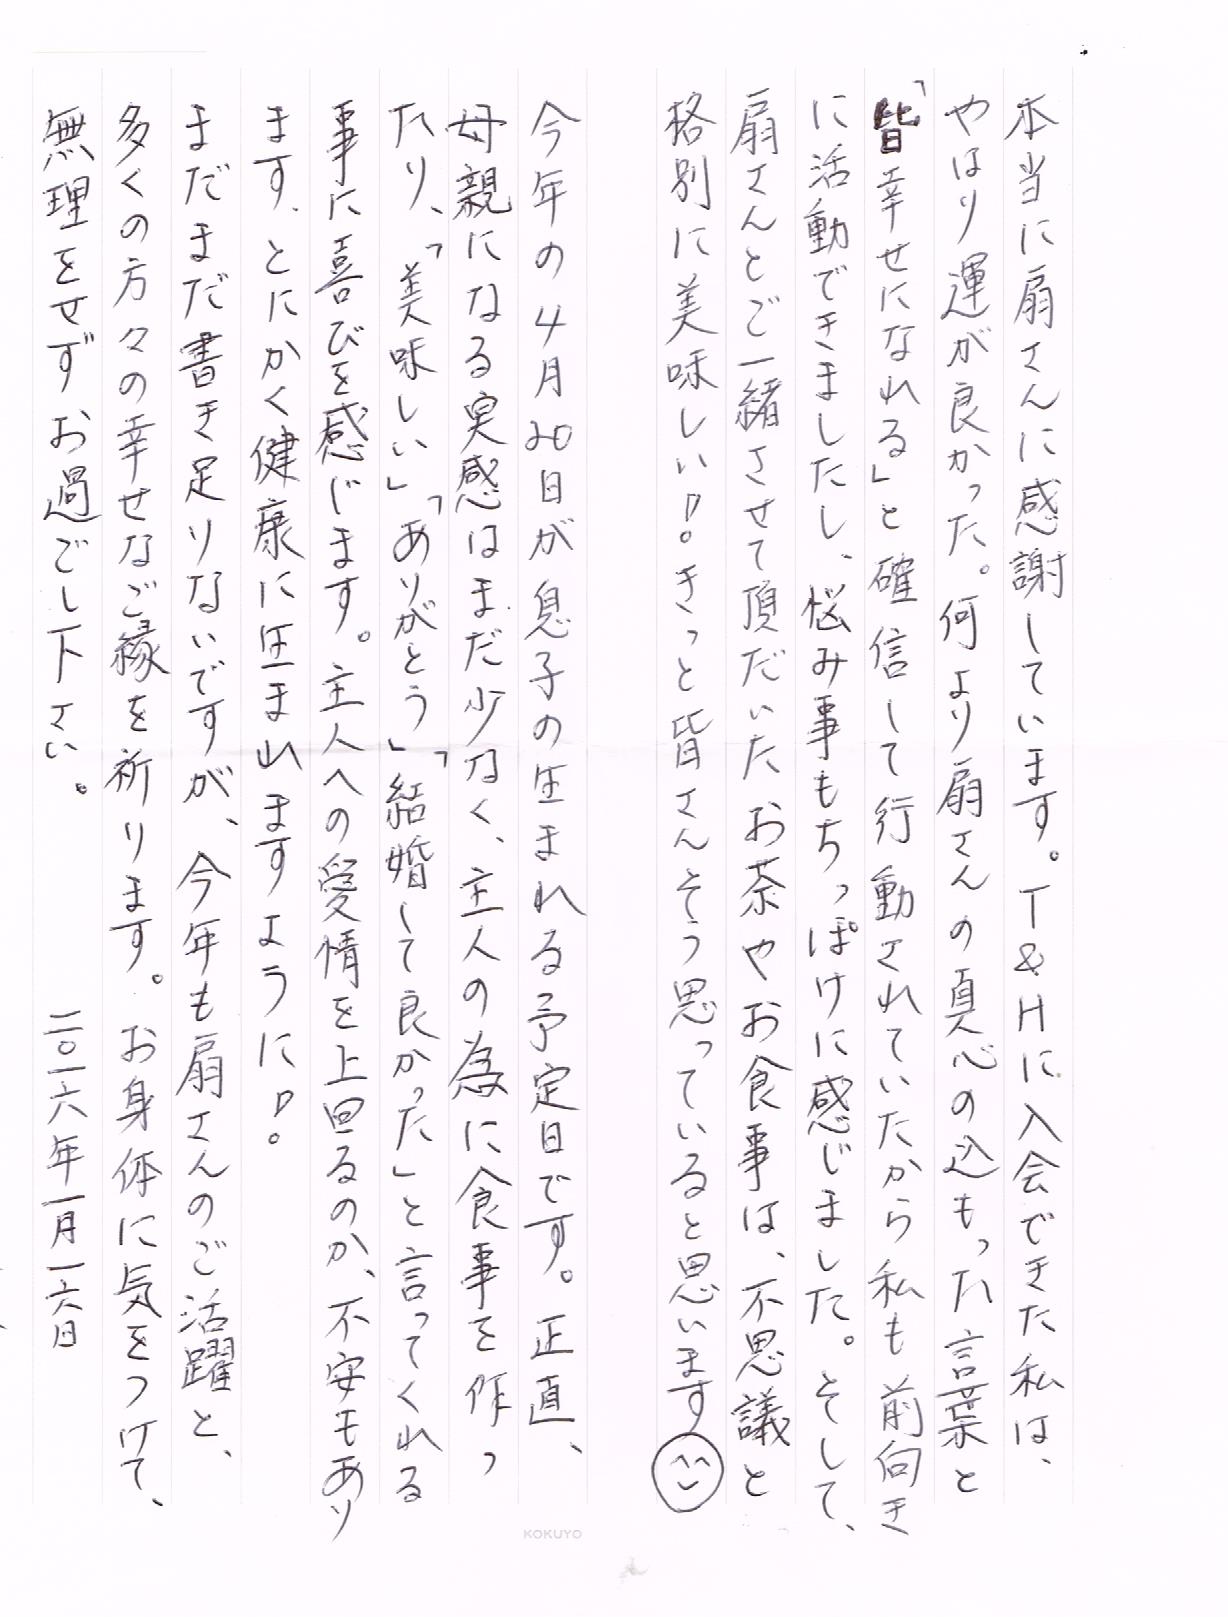 本当に扇さんに感謝しています。T&Hに入会できた私は、
やはり運が良かった。何より扇さんの真心の込もった言葉と
「皆幸せになれる」と確信して行動されていたから私も前向き
に活動できましたし、悩み事もちっぽけに感じました。そして、
扇さんとご一緒させて頂だいたお茶やお食事は、不思議と
格別に美味しい!。きっと皆さんそう思っていると思います
今年の4月20日が息子の生まれる予定日です。正直、
母親になる実感はまだ少なく、主人の為に食事を作っ
たり、「美味しい」「ありがとう」「結婚して良かった」と言ってくれる
事に喜びを感じます。主人への愛情を上回るのか、不安もあり
ます、とにかく健康に生まれますように!。
まだまだ書き足りないですが、今年も扇さんのご活躍と、
多くの方々の幸せなご縁を祈ります。お身体に気をつけて、
無理をせずお過ごし下さい。
二〇一六年一月一六日
KOKUYO